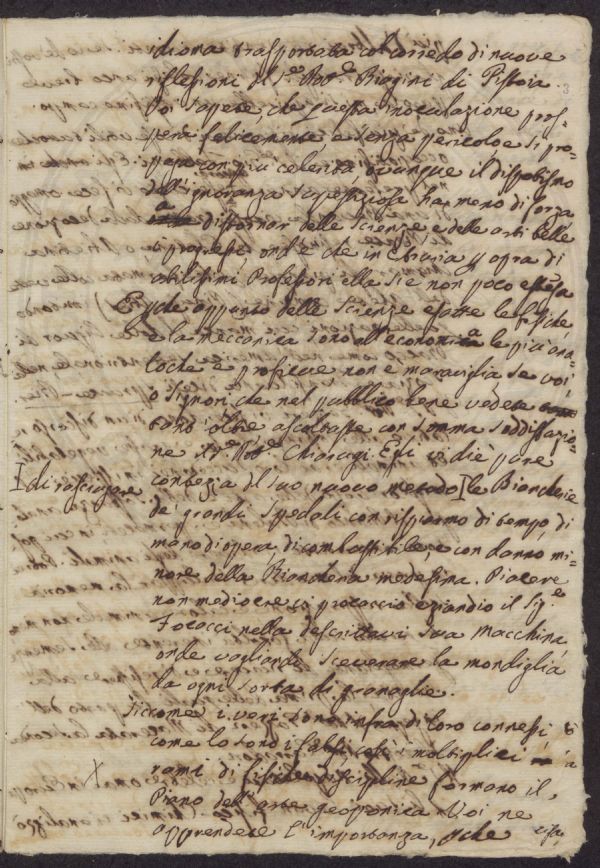 idioma trasportata col corredo di nuove
riflessioni del S.r Dott.r Biagini di Pistoia.
3
Voi sapete, che questa inoculazione pros-
pera felicemente, e senza pericolo e si pro-
paga con più celerità, ovunque il dispotismo
dell'ignoranza superstiziosa ha meno di forza
a distornar delle Scienze e delle arti belle
i progressi, ond'è che in Etruria p opra di
abilissimi Professori ella si è non poco estesa
E poiche appunto delle Scienze esatte le fisiche
e la meccanica sono all'economia le più ana-
loghe e proficue non è maraviglia se voi,
o Signori che nel pubblico bene vedete
tant'oltre ascoltaste con somma soddisfazio-
ne il D.r Chiarugi. Ei vi diè pure
contezza del suo nuovo metodo [le Biancherie
[di rasciugare
de' grandi Spedali con risparmio di tempo, di
mano d'opera, di combustibile, e con danno mi-
nore della Biancheria medesima. Piacere
non mediocre vi procacciò eziandio il Sig.e
Focacci nella descrittavi sua macchina,
onde vogliandi sceverare la mondiglia
da ogni sorta di granaglie.
Siccome i veri sono infra di loro connessi
come lo sono i falsi, così i moltiplici
rami di fisiche discipline formano il
X
Piano dell'arte geoponica. Voi ne
apprendete l'importanza, poiche